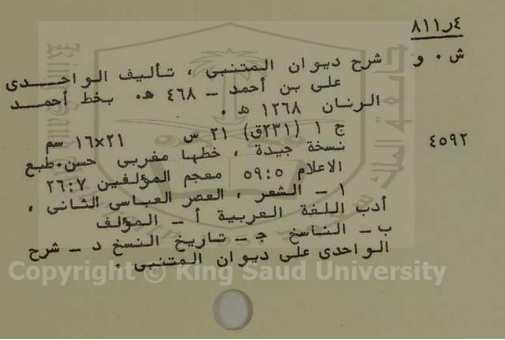 ٨١١ر٤
ش ٠ و شرح ديوان المتنبى ، تأليف الواحدى
على بن أحمد ـ ٤٦٨ هـ٠ بخط أحمد
الرنان ١٢٦٨ هـ ٠
٤٥٩٢ ج ١ (٢٣١ق) ٢١ س ٢١×١٦ سم
نسخة جيدة ، خطها مغربى حسن٠طبع
الاعلام ٥٩:٥ معجم المؤلفين ٢٦:٧
١ ـ الشعر ، العصر العباسى الثانى ،
أدب اللغة العربية أ ـ المؤلف
ب ـ الناسخ جـ ـ تاريخ النسخ د ـ شرح
الواحدى على ديوان المتنبى ٠
Copyright © King Saud University